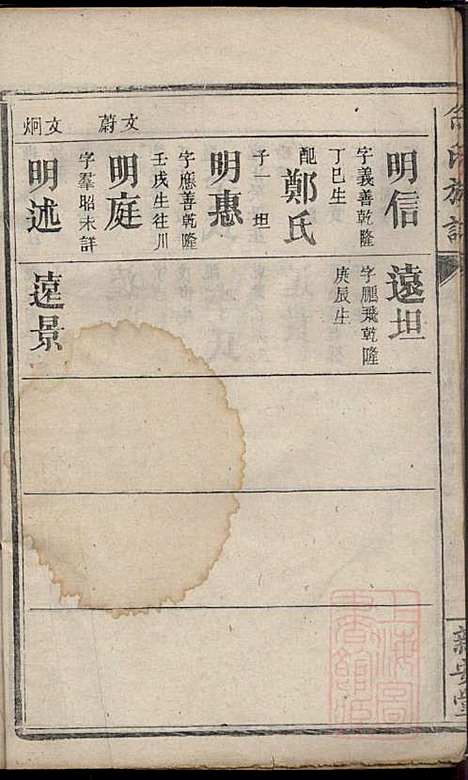 明信
字義善乾隆
丁巳生
配鄭氏
子一坦
明惠
字應善乾隆
壬戌生往川
文蔚
明庭
字羣昭未詳
文炯
明述
遠坦
字鵬飛乾隆
庚辰生
遠景
氏族譜